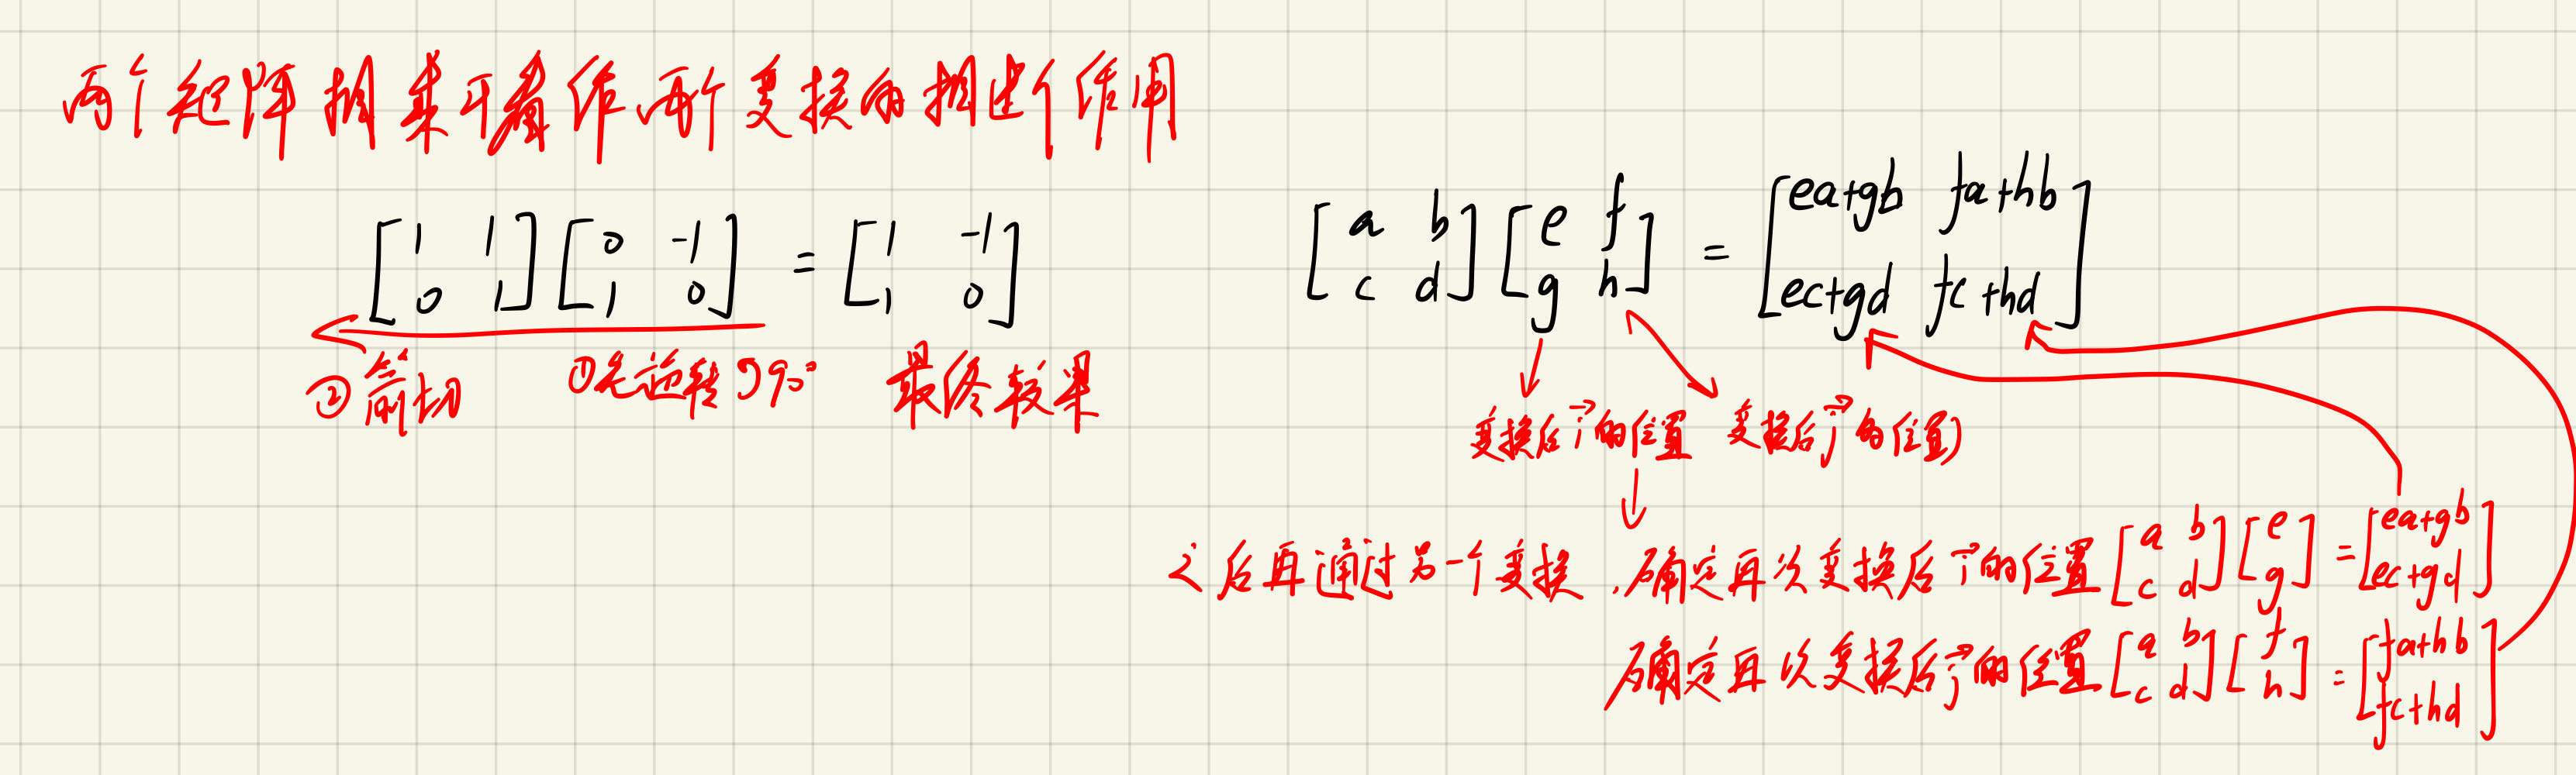 两个矩阵相乘可看作两个变换的相继作用
[1 1; 0 1] [0 -1; 1 0] = [1 -1; 1 0]
② 剪切 ①先逆转 90° 最终效果
[a b; c d] [e f; g h] = [ea+gb fa+hb; ec+gd fc+hd]
变换后 i⃗ 的位置 变换后 j⃗ 的位置
之后再通过另一个变换，确定再次变换后 i⃗ 的位置 [a b; c d] [e; g] = [ea+gb; ec+gd]
确定再次变换后 j⃗ 的位置 [a b; c d] [f; h] = [fa+hb; fc+hd]